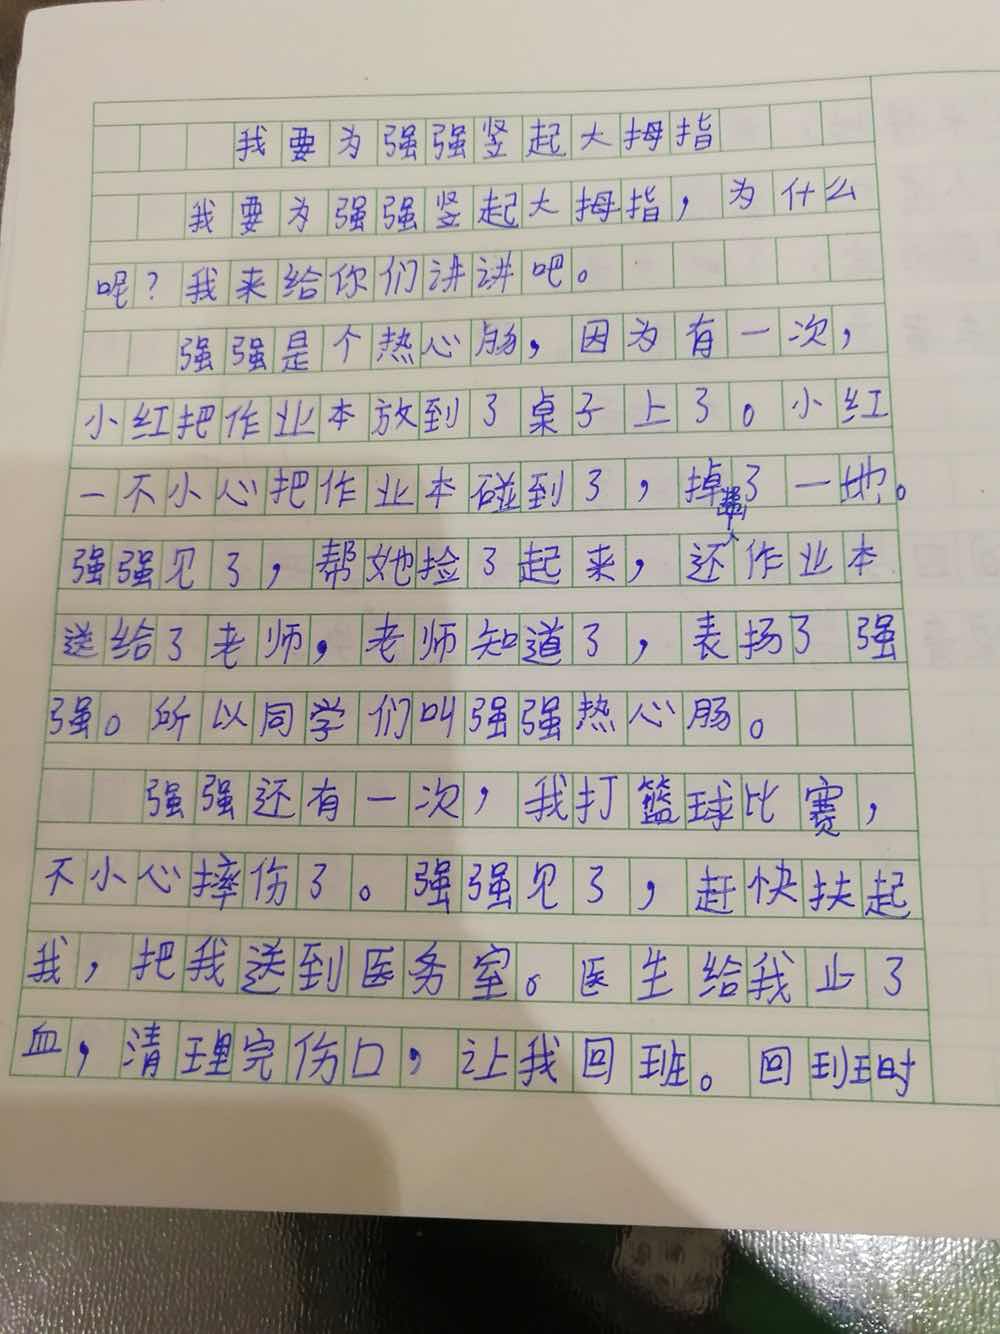 我要为强强竖起大拇指
我要为强强竖起大拇指，为什么
呢？我来给你们讲讲吧。
强强是个热心肠，因为有一次，
小红把作业本放到了桌子上了。小红
一不小心把作业本碰到了，掉了一地。
强强见了，帮她捡了起来，还作业本
送给了老师，老师知道了，表扬了强
强。所以同学们叫强强热心肠。
强强还有一次，我打篮球比赛，
不小心摔伤了。强强见了，赶快扶起
我，把我送到医务室。医生给我止了
血，清理完伤口，让我回班。回到班时